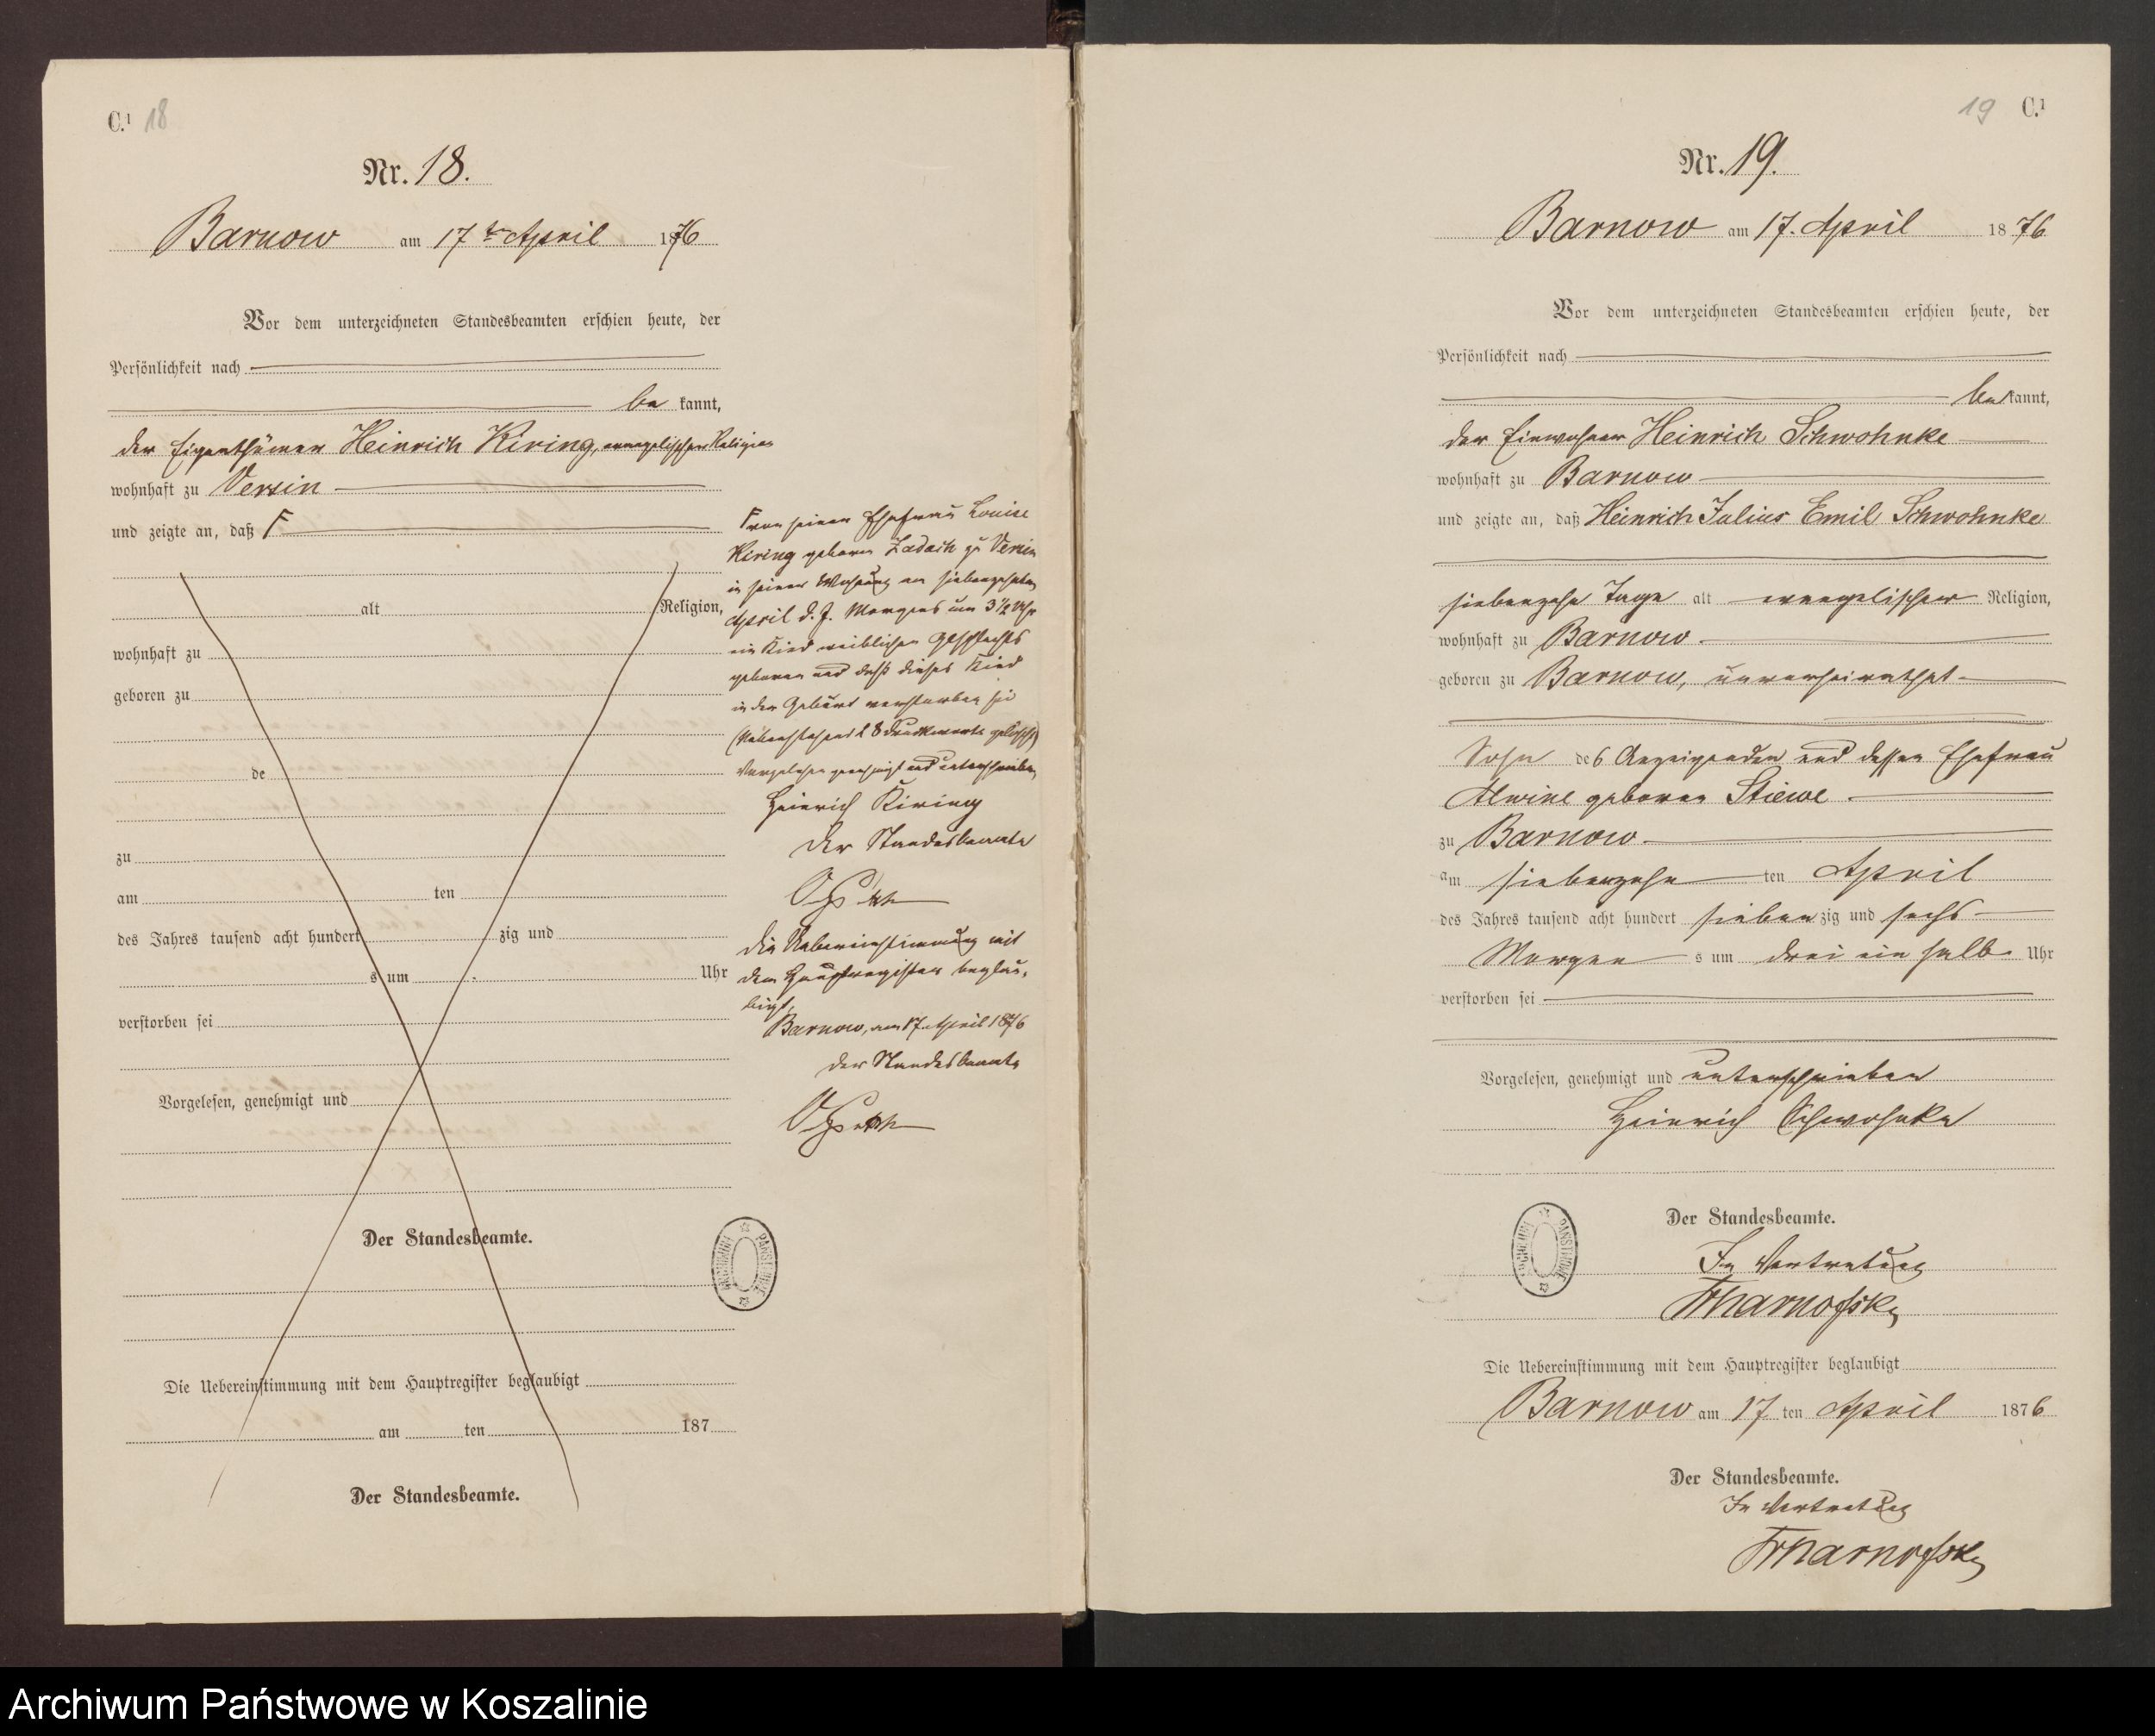 C.¹ 18
Nr. 18.
Barnow am 17ten April 1876
Vor dem unterzeichneten Standesbeamten erschien heute, der
Persönlichkeit nach
be kannt,
der Eigenthümer Heinrich Kiring, evangelischer Religion
wohnhaft zu Versin
und zeigte an, daß F
alt Religion,
wohnhaft zu
geboren zu
de
zu
am ten
des Jahres tausend acht hundert zig und
s um Uhr
verstorben sei
Vorgelesen, genehmigt und
Der Standesbeamte.
Die Uebereinstimmung mit dem Hauptregister beglaubigt
am ten 187
Der Standesbeamte.
F von seiner Ehefrau Louise
Kiring geboren Zadach zu Versin
in seiner Wohnung am siebenzehnten
April d. J. Morgens um 3 1/2 Uhr
ein Kind weiblichen Geschlechts
geboren und daß dieses Kind
in der Geburt verstorben sei
(Nebenstehend 28 Druckworte gelöscht)
Vorgelesen genehmigt und unterschrieben
Heinrich Kiring
Der Standesbeamte
Die Uebereinstimmung mit
dem Hauptregister beglau-
bigt,
Barnow, am 17. April 1876
Der Standesbeamte
ARCHIWUM PAŃSTWOWE
19 C.¹
Nr. 19.
Barnow am 17. April 1876
Vor dem unterzeichneten Standesbeamten erschien heute, der
Persönlichkeit nach
be kannt,
der Einwohner Heinrich Schwohnke
wohnhaft zu Barnow
und zeigte an, daß Heinrich Julius Emil Schwohnke
siebenzehn Tage alt evangelischer Religion,
wohnhaft zu Barnow
geboren zu Barnow, unverheirathet
Sohn des Anzeigenden und dessen Ehefrau
Alwine geboren Stiewe
zu Barnow
am siebenzehn ten April
des Jahres tausend acht hundert sieben zig und sechs
Morgen s um drei ein halb Uhr
verstorben sei
Vorgelesen, genehmigt und unterschrieben
Heinrich Schwohnke
ARCHIWUM PAŃSTWOWE
Der Standesbeamte.
In Vertretung
Die Uebereinstimmung mit dem Hauptregister beglaubigt
Barnow am 17 ten April 1876
Der Standesbeamte.
In Vertretung
Archiwum Państwowe w Koszalinie